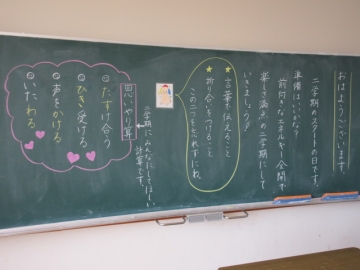 おはようございます。
二学期のスタートの日です。
準備はいいかな?
前向きなエネルギー全開で
楽しさ満点の二学期にして
いきましょう♪
★言葉で伝えること
★折り合いをつけること
この二つを忘れずにね。
二学期に みんなにしてほしい
計算です。
思いやり算
たすけ合う
ひき受ける
声をかける
いたわる